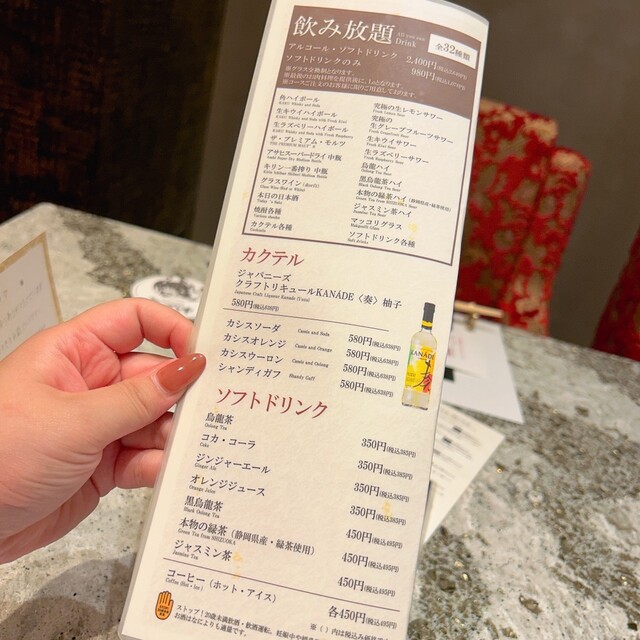 飲み放題 All you can Drink 全32種類
アルコール・ソフトドリンク 2,400円(税込2,640円)
ソフトドリンクのみ 980円(税込1,078円)
※グラス交換制となります。
角ハイボール
KAKU Whisky and Soda
生キウイハイボール
KAKU Whisky and Soda with Fresh Kiwi
生ラズベリーハイボール
KAKU Whisky and Soda with Fresh Raspberry
ザ・プレミアム・モルツ
THE PREMIUM MALT'S
アサヒスーパードライ 中瓶
キリン一番搾り 中瓶
グラスワイン(赤or白)
本日の日本酒
焼酎各種
カクテル各種
Cocktails
究極の生レモンサワー
究極の
生グレープフルーツサワー
生キウイサワー
生ラズベリーサワー
烏龍ハイ
黒烏龍茶ハイ
本物の緑茶ハイ(静岡県産・緑茶使用)
ジャスミン茶ハイ
マッコリグラス
ソフトドリンク各種
Soft drinks
カクテル
ジャパニーズ
クラフトリキュールKANADE〈奏〉柚子
Japanese Craft Liqueur Kanade (Yuzu)
580円(税込638円)
カシスソーダ Cassis and Soda 580円(税込638円)
カシスオレンジ Cassis and Orange 580円(税込638円)
カシスウーロン Cassis and Oolong 580円(税込638円)
シャンディガフ Shandy Gaff 580円(税込638円)
KANADE
ソフトドリンク
烏龍茶 350円(税込385円)
Oolong Tea
コカ・コーラ 350円(税込385円)
Coke
ジンジャーエール 350円(税込385円)
Ginger Ale
オレンジジュース 350円(税込385円)
Orange Juice
黒烏龍茶 450円(税込495円)
Black Oolong Tea
本物の緑茶(静岡県産・緑茶使用) 450円(税込495円)
Green Tea from SHIZUOKA
ジャスミン茶 450円(税込495円)
Jasmine Tea
コーヒー(ホット・アイス) 各450円(税込495円)
Coffee (Hot・Ice)
ストップ!20歳未満飲酒・飲酒運転。妊娠中や
お酒はなによりも適量です。
※( )内は税込み価格